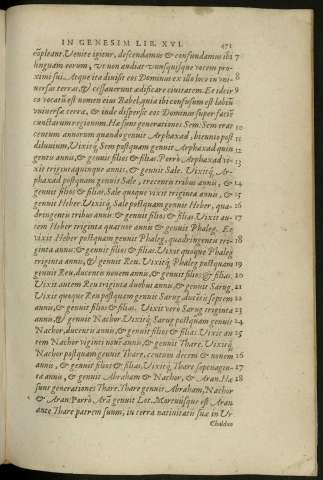 IN GENESIM LIB. XVI. 471
cõpleant. Venite igitur, descendamus & confundamus ibi 7
linguam eorum, vt non audiat vnusquisque vocem pro-
ximi sui. Atque ita diuisit eos Dominus ex illo loco in vni- 8
uersas terras, & cessauerunt ædificare ciuitatem. Et idcir 9
co vocatũ est nomen eius Babel, quia ibi confusum est labiũ
vniuersæ terræ, & inde dispersit eos Dominus super faciẽ
cunctarum regionum. Hæ sunt generationes Sem: Sem erat 10
centum annorum quando genuit Arphaxad, biennio post
diluuium, Vixitq́; Sem postquam genuit Arphaxad quin 11
gentis annis, & genuit filios & filias. Porrò Arphaxad vi- 12
xit trigintaquinque annis, & genuit Sale. Vixitq́; Ar- 13
phaxad postquam genuit Sale, trecentis tribus annis, & 14
genuit filios & filias. Sale quoque vixit triginta annis, &
genuit Heber. Vixitq́; Sale postquam genuit Heber, qua- 15
dringentis tribus annis & genuit filios & filias. Vixit au- 16
tem Heber triginta quatuor annis & genuit Phaleg. Et 17
vixit Heber postquam genuit Phaleg, quadringentis tri- 18
ginta annis, & genuit filios & filias. Vixit quoque Phaleg
triginta annis, & genuit Reu. Vixitq́; Phaleg postquam 19
genuit Reu, ducentis nouem annis, & genuit filios & filias. 20
Vixit autem Reu triginta duobus annis, & genuit Sarug. 21
Vixit quoque Reu postquam genuit Sarug ducẽtis septem 22
annis, & genuit filios & filias. Vixit verò Sarug triginta 23
annis, & genuit Nachor. Vixitq́; Sarug postquam genuit 24
Nachor, ducentis annis, & genuit filios & filias. Vixit au 25
tem Nachor viginti nouẽ annis, & genuit Thare. Vixitq́;
Nachor postquam genuit Thare, centum decem & nouem 26
annis, & genuit filios & filias. Vixitq́; Thare septuagin- 27
ta annis, & genuit Abraham & Nachor, & Aran. Hæ 28
sunt generationes Thare. Thare genuit Abraham, Nachor
& Aran. Porrò Arã genuit Lot. Mortuúsque est Aran
ante Thare patrem suum, in terra natiuitatis suæ in Vr
Chaldæo